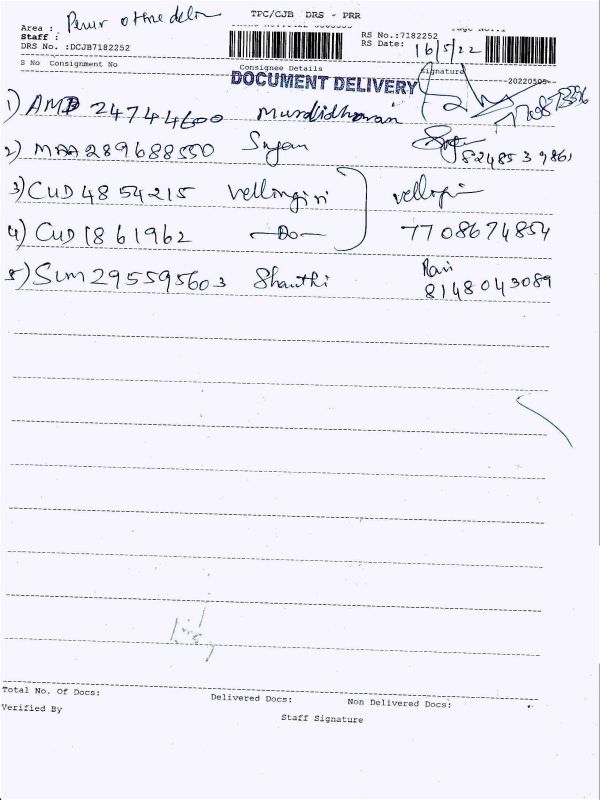 TPC/CJB DRS - PRR
Area : Perur
Staff :
DRS No. :DCJB7182252
RS No.:7182252
RS Date: 16/5/22
S No Consignment No Consignee Details Signature
DOCUMENT DELIVERY
-20220505-
1) AMD 24744600 Murdidharan
2) MAA 289688550 8248539861
3) CUD 4854215 Vellingiri
4) CUD 1861962 -Do- 7708674854
5) SLM 295595603 Shanthi Ravi
8148043089
Total No. Of Docs: Delivered Docs: Non Delivered Docs:
Verified By Staff Signature